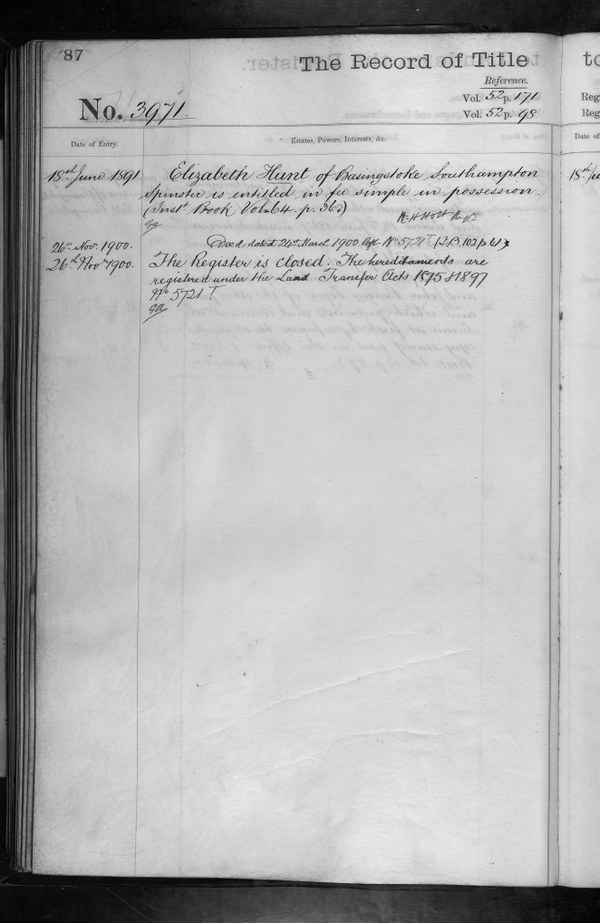 87
The Record of Title
Reference.
Vol. 52 p. 171
Vol. 52 p. 98
No. 3971.
Date of Entry.
Estates, Powers, Interests, &c.
18th June 1891
Elizabeth Hunt of Basingstoke Southampton
Spinster is entitled in fee simple in possession.
(Inst. Book Vol. 64. p. 36.)
26th Nov. 1900.
Deed dated 24th March 1900 No 5721 T.
26th Novr 1900.
The Register is Closed. The hereditaments are
registered under the Land Transfer Acts 1875 & 1897
No 5721 T.
to
Reg
Reg
Date of
18th Ju